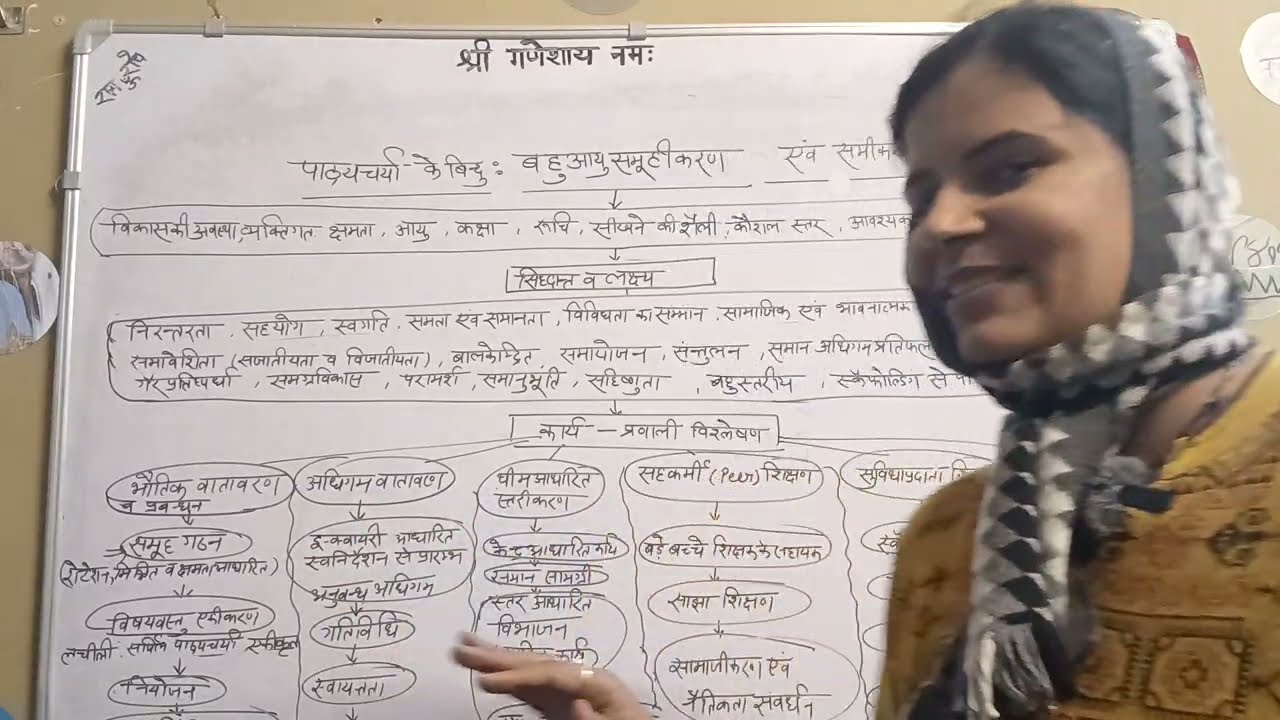 श्री गणेशाय नमः
पाठ्यचर्या के बिन्दु: बहुआयुसमूहीकरण एंव
विकास की अवस्था, व्यक्तिगत क्षमता, आयु, कक्षा, रूचि, सीखने की शैली, कौशल स्तर,
सिध्दान्त व लक्ष्य
निरन्तरता, सहयोग, स्वगति, समता एंव समानता, विविधता का सम्मान, सामाजिक एंव भावनात्मक
समावेशिता (सजातीयता व विजातीयता), बालकेन्द्रित, समायोजन, संन्तुलन, समान अधिगम
गैर प्रतिस्पर्धा, समग्रविकास, परामर्श, समानुभूति, सहिष्णुता, बहुस्तरीय, स्कैफोल्डिंग से
कार्य - प्रणाली विश्लेषण
भौतिक वातावरण
व प्रबन्धन
समूह गठन
रोटेशन, मिश्रित व क्षमता आधारित)
विषयवस्तु एकीकरण
लचीली, सर्पिल पाठ्यचर्या एकीकृत
नियोजन
अधिगम वातावरण
इन्क्वायरी आधारित
स्वनिर्देशन से प्रारम्भ
अनुबन्ध अधिगम
गतिविधि
स्वायत्तता
थीम आधारित
स्तरीकरण
केन्द्र आधारित कार्य
समान सामग्री
स्तर आधारित
विभाजन
सहकर्मी (Peer) शिक्षण
बड़े बच्चे शिक्षक के सहायक
साझा शिक्षण
सामाजीकरण एंव
नैतिकता संवर्धन
सुविधाप्रदाता